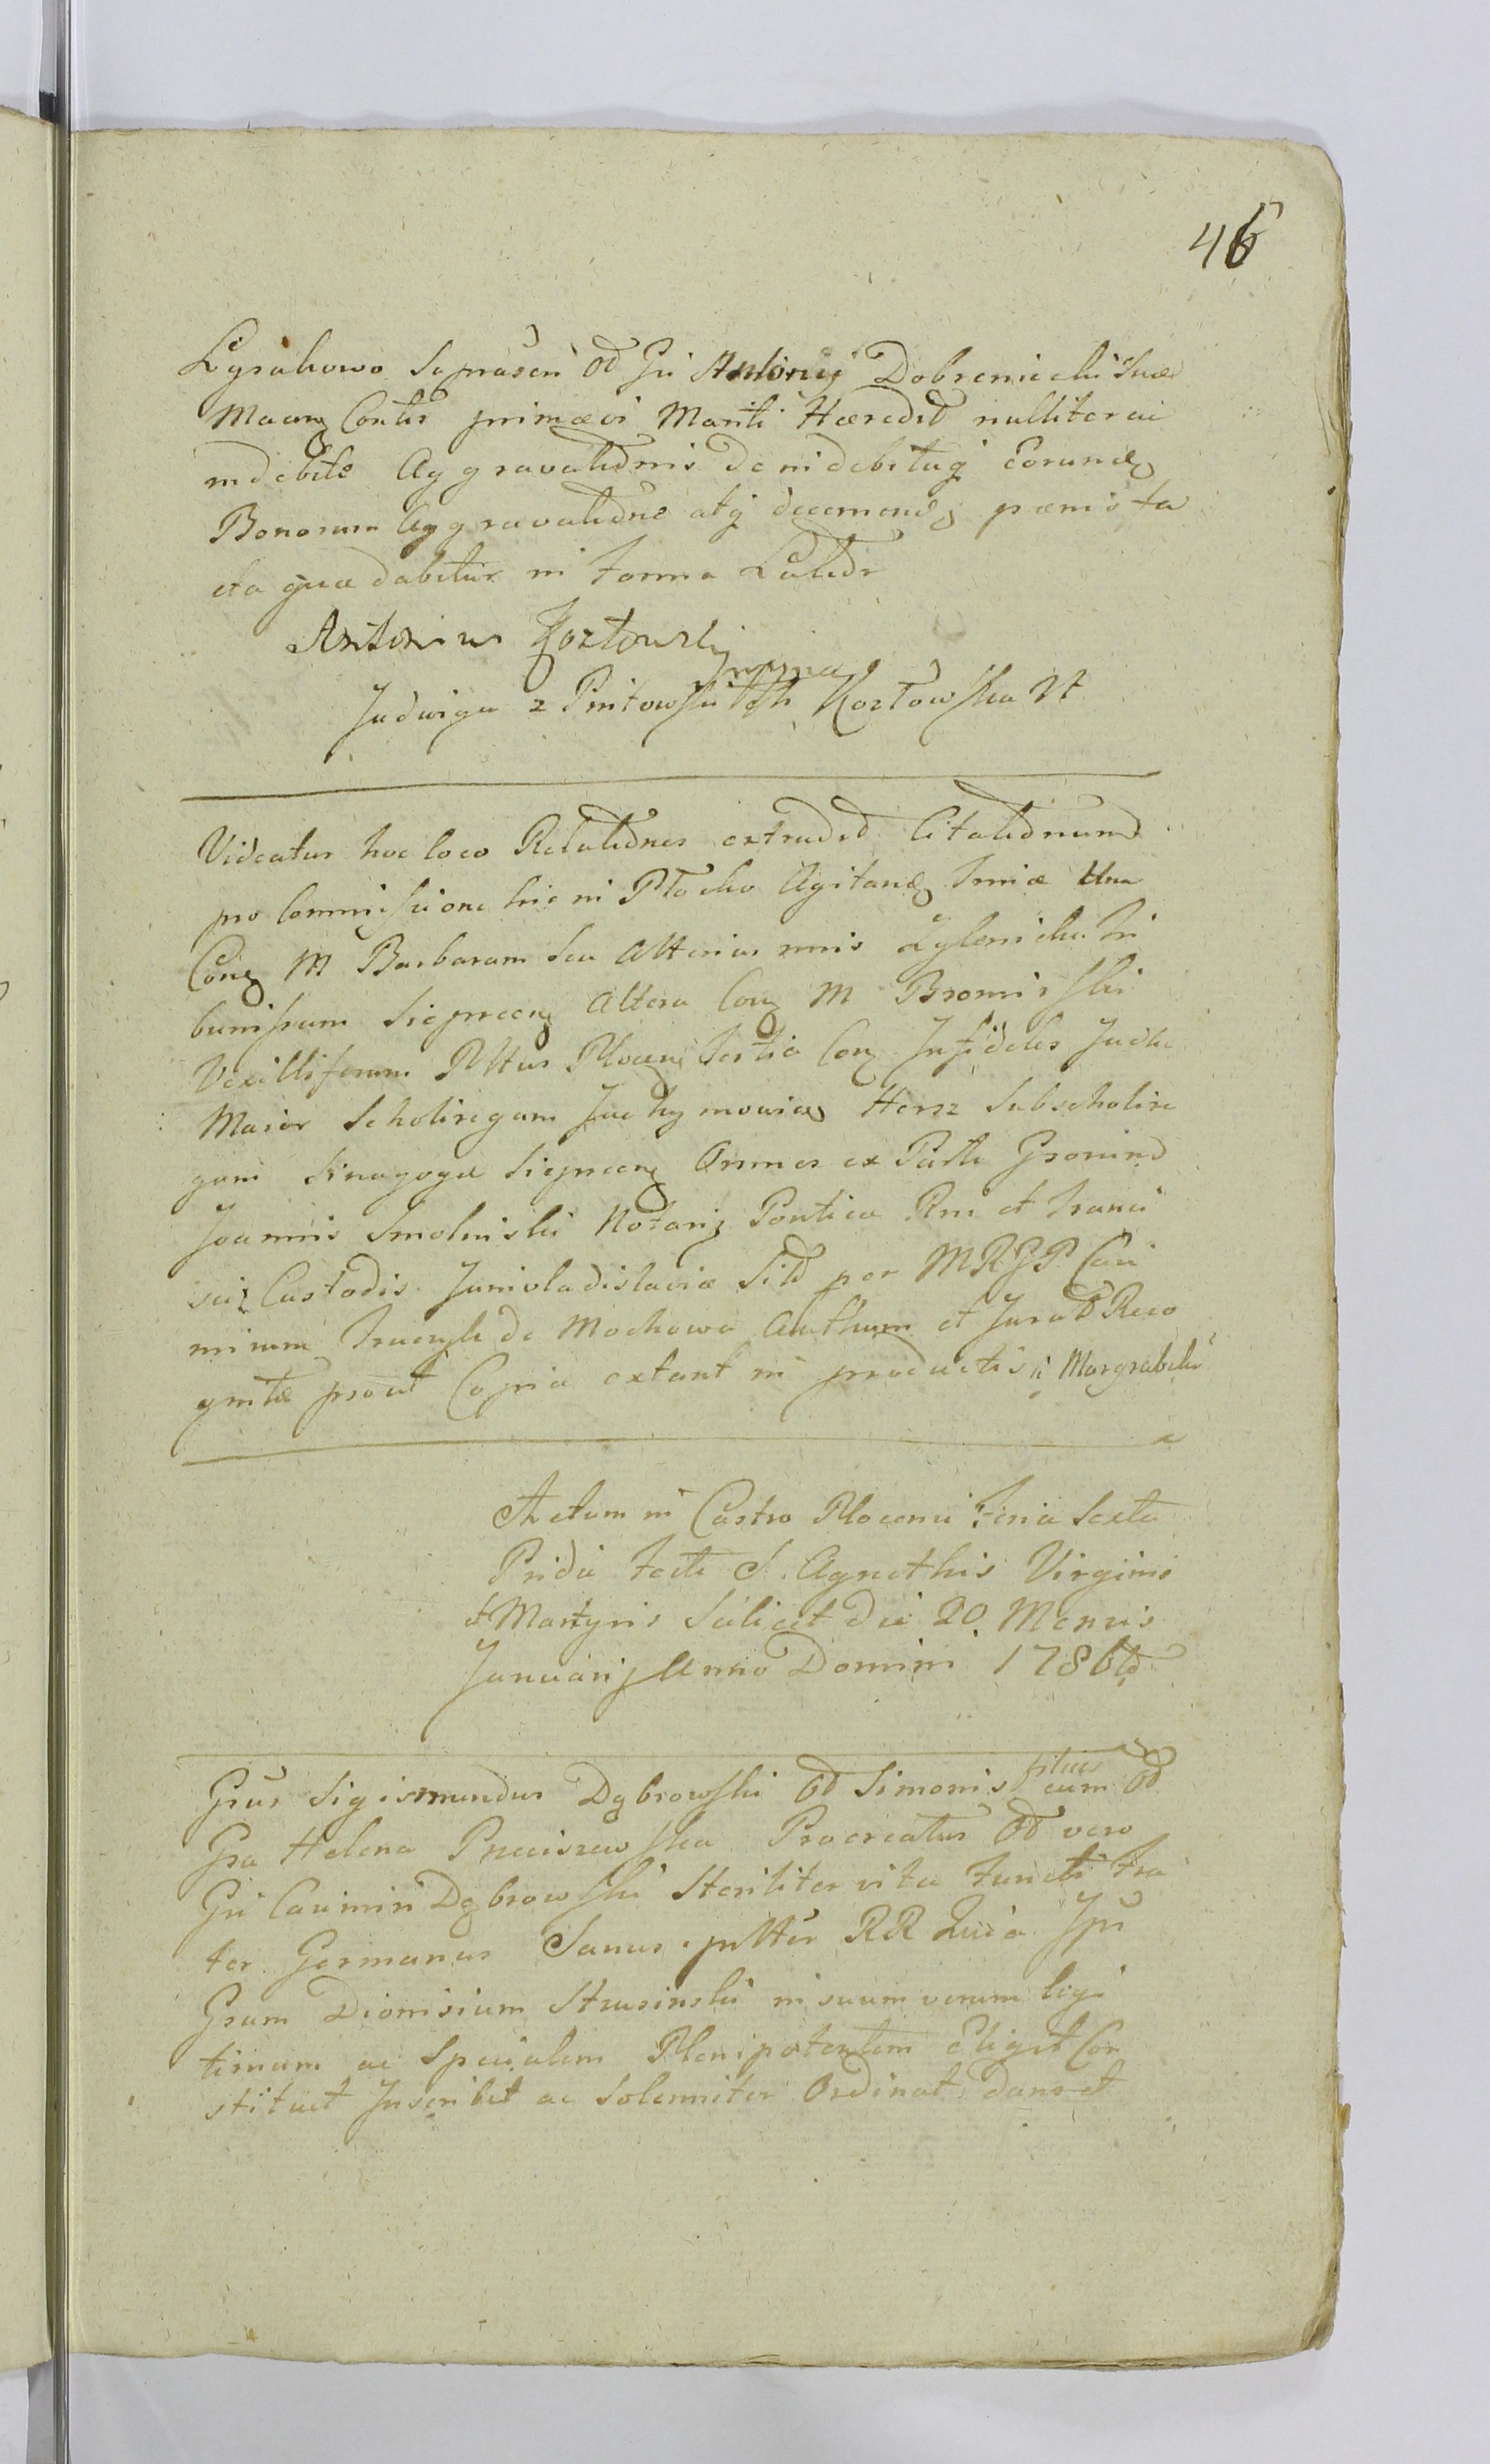 46
Łysakowo suprascri Od Gsi Antonij Dobrzeniecki suæ
Maceng Contis primævi Mariti Hæredit nulliter ac
indebite Aggravationis de indebitaq eorund
Bonorum Aggravatione atq decernend pænis ta
eta quæ dabitur in forma Latior
Antonius Kozłowski
mpria
Jadwiga z Pniwoskich Kozłowska
Videatur hoc loco Relationes extradit Citationum
pro Commissione hic in Płocko Agitand Imiæ Una
Cong M Barbaram Seu Alterius nnis Zglenicka Tri
bunissam Sieprceng Altera Cong M Bromirski
Vexilliferum Pttus Ploceng tertia Cong Infideles Judki
Maior Scholiregum Jachymowicz Hersz Subscholire
gum Sinagogæ Sieprceng Omnes ex Parte Grorund
Joannis Smoleński Notarij Pontica Rni et Franci
scij Custodis Juniuladislaviæ Sitd per MRGP Casi
mirum Fraczyk de Mochowo Authum et Jurat Reco
gnitæ prout Copia extant in productis ;; Margrabski
Actum in Castro Plocensi Feria Sexta
Pridie Festi S. Agnethis Virginis
et Martyris Scilicet die 20. Mensis
Januarij Anno Domini 1786to
Gsus Sigismundus Dąbrowski Od Simonis filius cum Od
Gsa Helena Preciszewska Procreatus Od vero
Gsi Casimiri Dąbrowski Steriliter vita functi fra
ter Germanus Sanus pttur RR Quia Ipse
Gsum Dionisium Strusinski in suum verum legi
timum ac Specialem Plenipotentem Eligit Con
stituet Inscribit ac Solenniter Ordinat dans et